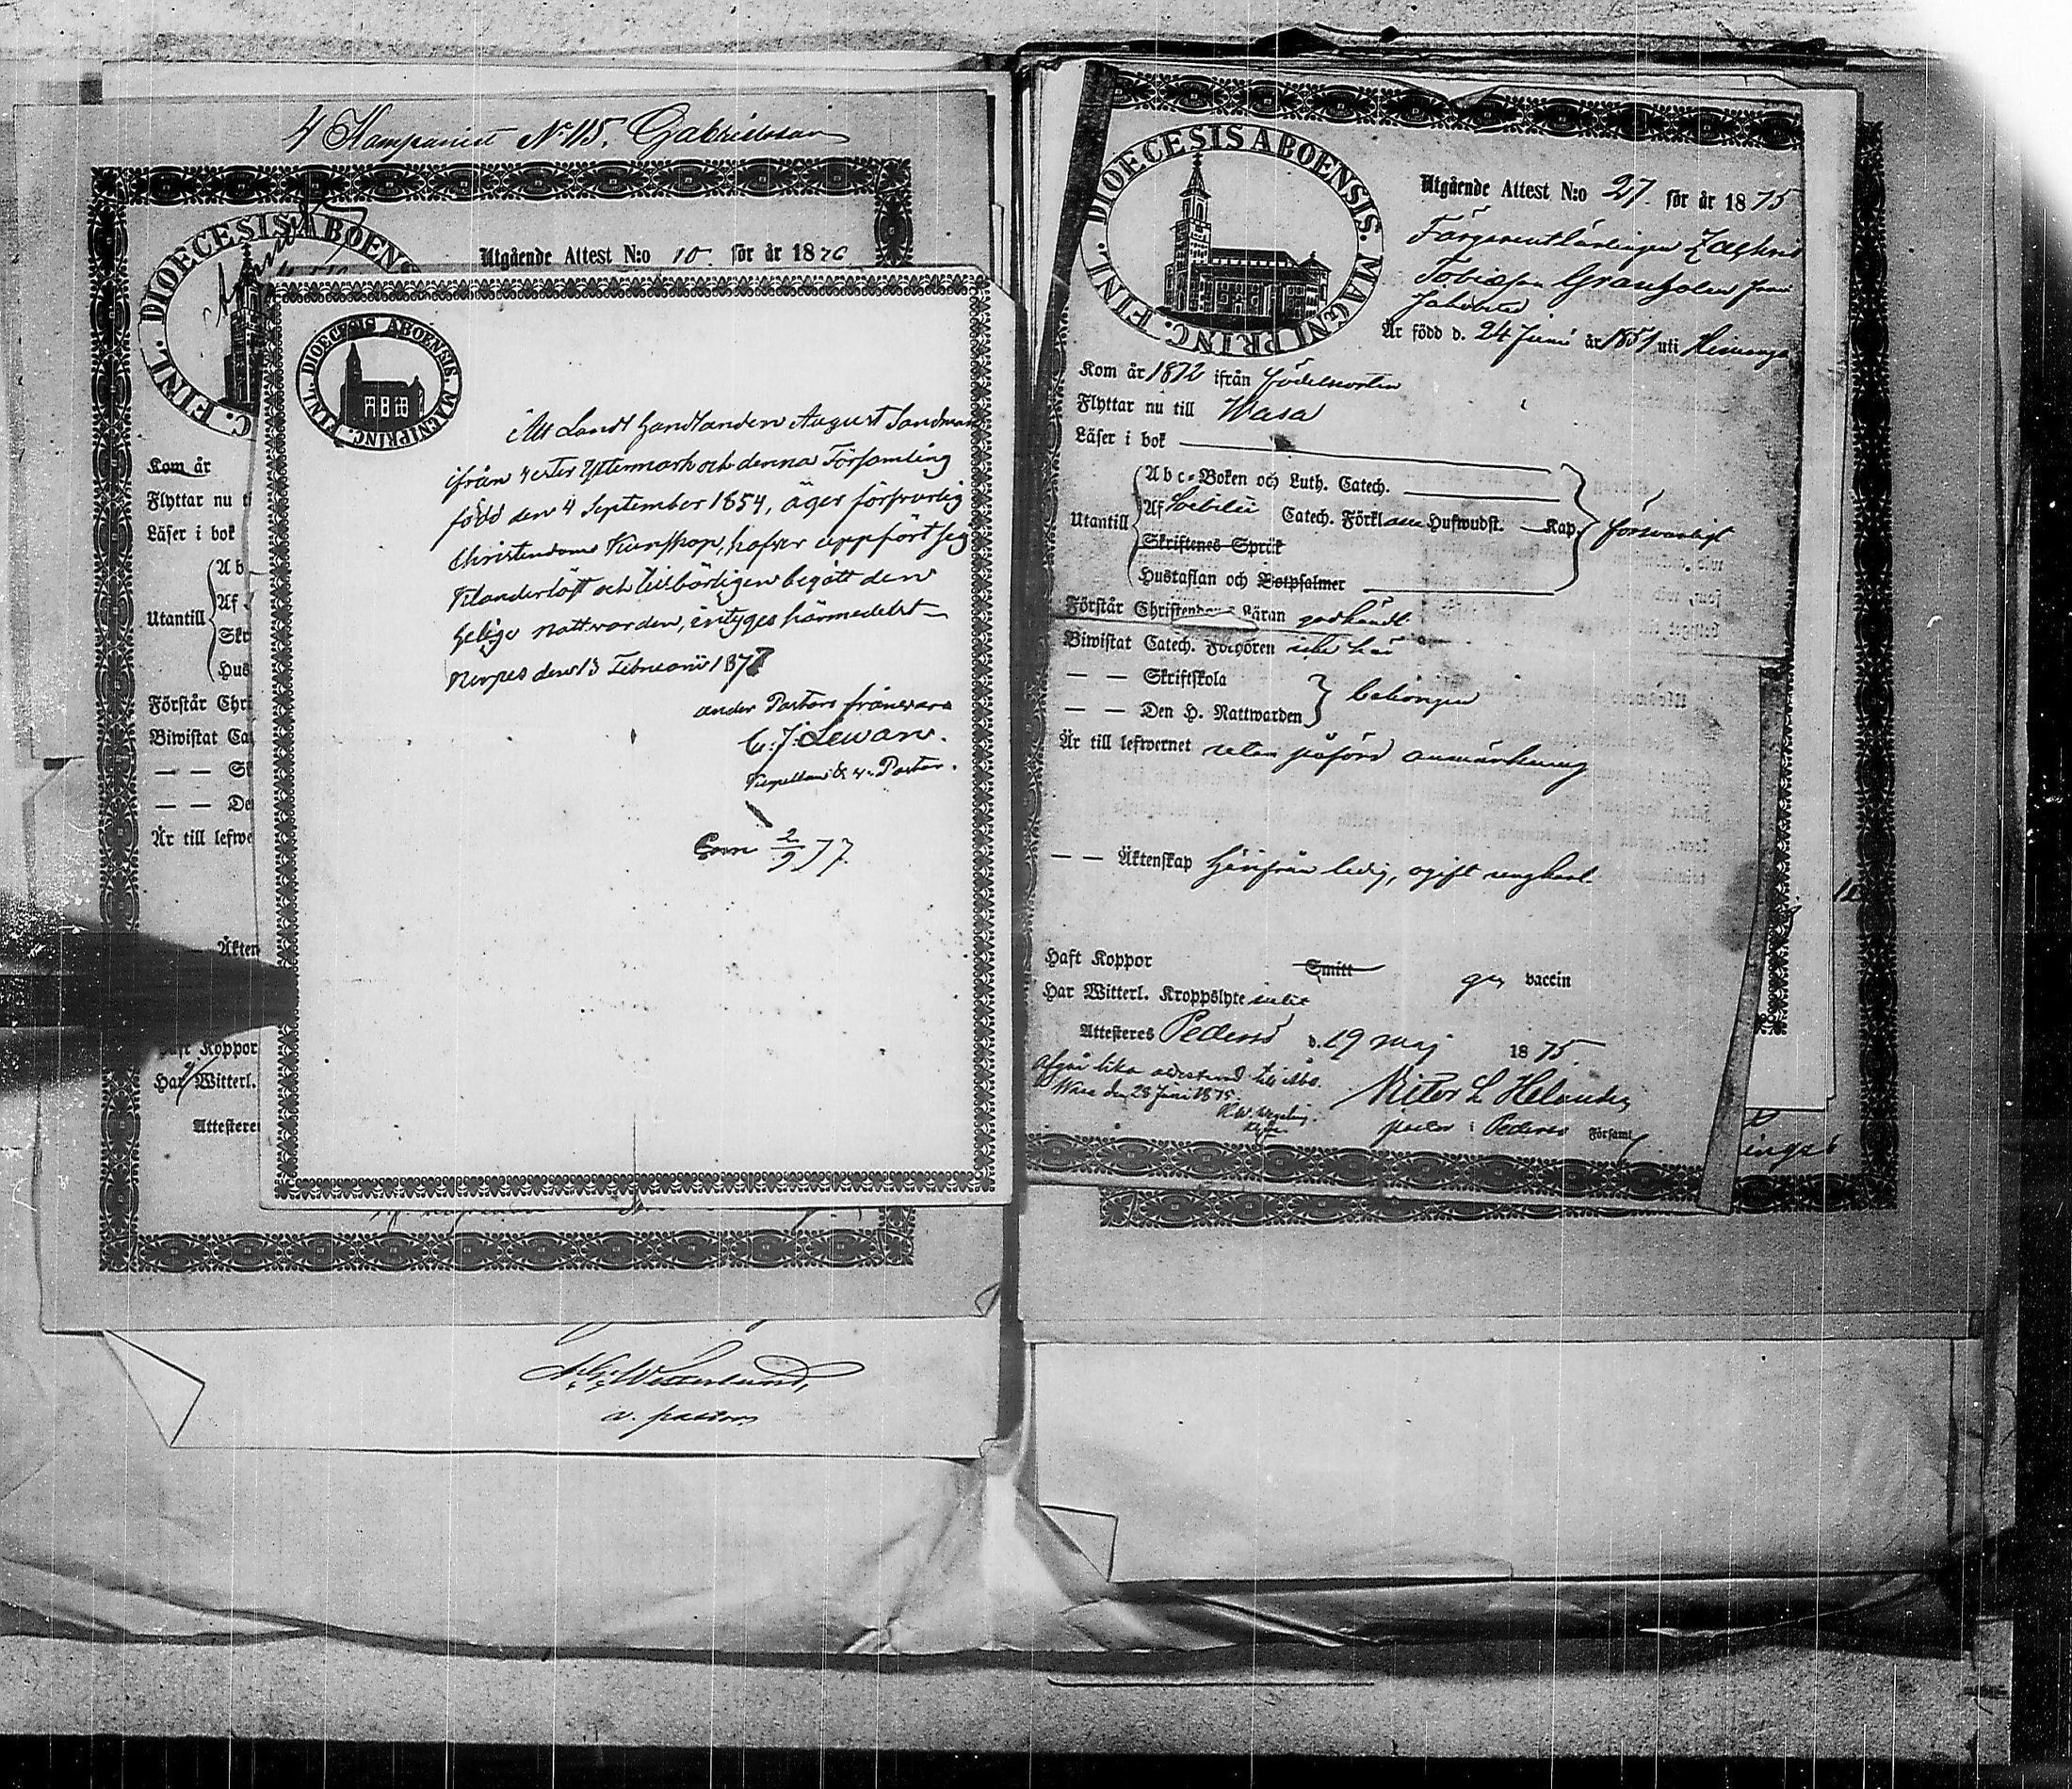 4 Kompaniet No 115. Gabrielsson
DIOECESIS ABOEN
C. FINL.
Utgående Attest N:o 10. för år 1876
Kom år
Flyttar nu t
Läser i bok
Ab
Utantill
Af
Skr
Hus
Förstår Chri
Biwistat Ca
— — Sk
— — De
Är till lefwe
Äkten
Haft Koppor
Har Witterl.
Attestere
DIOECESIS ABOENSIS. MAGNI PRINC. FINL.
Att Landthandlanden August Sandman
ifrån Yttermark och denna Församling
född den 4 September 1854, äger försvarlig
Christendoms Kunskap, hafver uppfört sig
klanderlöst och tillbörligen begått den
helige Nattvarden, intyges härmedelst
Nerpes den 13 Februarii 1877
under Pastors frånvaro
C. J. Lewan.
Kapellan & v. Pastor.
2/9 77.
Westerlund,
v. pastor.
DIOECESIS ABOENSIS. MAGNI PRINC. FINL.
Utgående Attest N:o 27. för år 1875
Färgerilärlingen Zachris
Tobiasson Granholm från
Jakobstad
Är född d. 24 Juni år 1851 uti
Kom år 1872 ifrån födelseorten
Flyttar nu till Wasa
Läser i bok
Abc-Boken och Luth. Catech.
Utantill
Af Svebilii Catech. Förkl. Hufwudst. Kap.
försvarligt
Skriftenes Språk
Hustaflan och Botpsalmer
Förstår Christendoms Läran godkändt
Biwistat Catech. Förhören icke här
— — Skriftskola
— — Den H. Nattwarden
behörigen
Är till lefwernet utan påförd anmärkning
— — Äktenskap härifrån ledig, ogift ungkarl.
Haft Koppor Smitt gm vaccin
Har Witterl. Kroppslyte icke
Attesteras Pedersö d. 19 maj 1875.
Afgår lika oförändrad till Åbo.
Wasa den 28 Juni 1875.
Victor L Helander
pastor i Pedersö Församl.